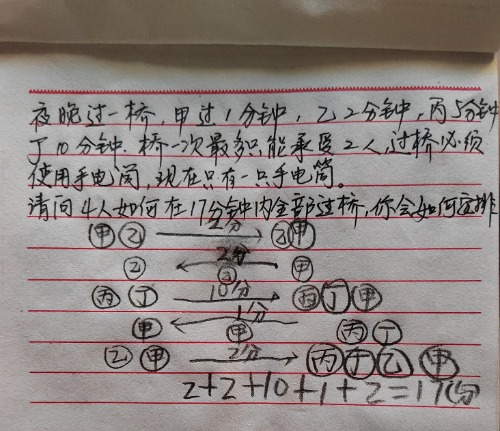 夜晚过一桥,甲过1分钟,乙2分钟,丙5分钟
丁10分钟.桥一次最多只能承受2人,过桥必须
使用手电筒,现在只有一只手电筒。
请问4人如何在17分钟内全部过桥,你会如何安排
甲 乙 2分 乙 甲
乙 2分 甲
乙
丙 丁 10分 丙 丁 甲
甲 1分 甲 丙 丁
乙 甲 2分 丙 丁 乙 甲
2+2+10+1+2=17(分